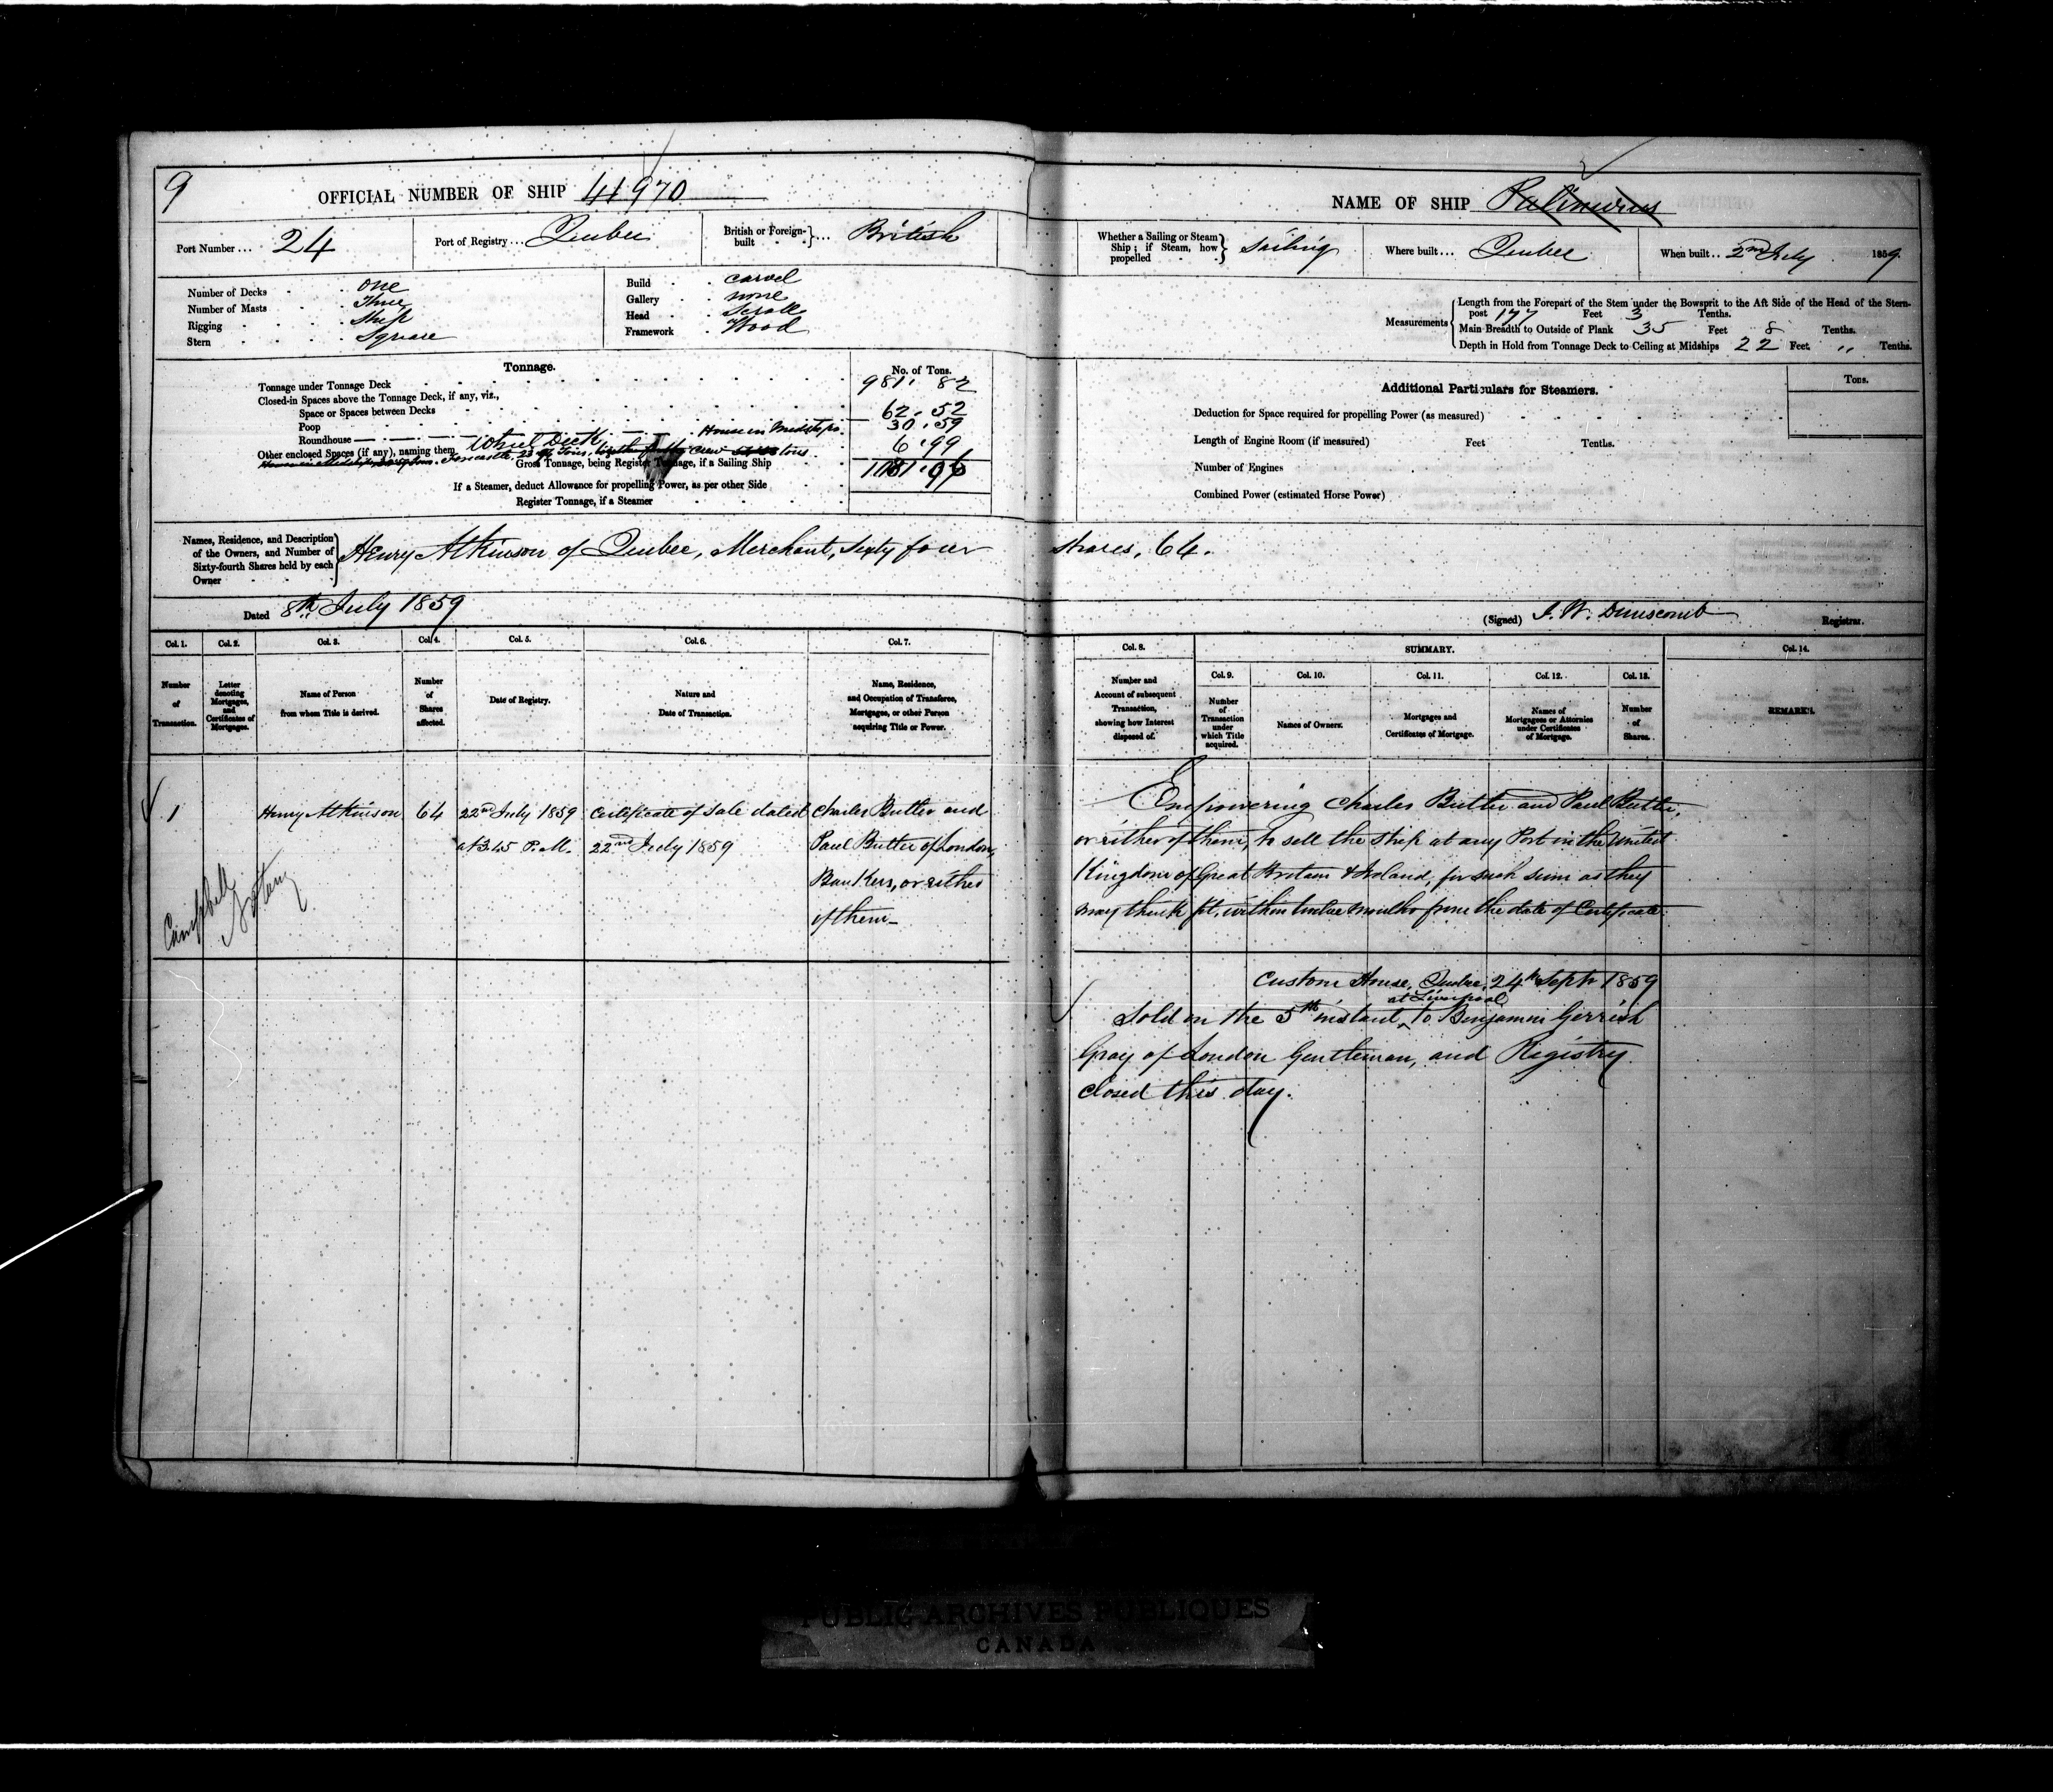 9
OFFICIAL NUMBER OF SHIP 41970
Port Number ... 24
Port of Registry ... Quebec
British or Foreign-built ... British
Number of Decks one
Number of Masts Three
Rigging Ship
Stern Square
Build carvel
Gallery none
Head Scroll
Framework Wood
Tonnage.
No. of Tons.
Tonnage under Tonnage Deck 981. 82
Closed-in Spaces above the Tonnage Deck, if any, viz.,
Space or Spaces between Decks
Poop 62. 52
Roundhouse House in Midships 30. 59
Other enclosed Spaces (if any), naming them Wheel Deck 6. 99
Gross Tonnage, being Register Tonnage, if a Sailing Ship
If a Steamer, deduct Allowance for propelling Power, as per other Side
Register Tonnage, if a Steamer
Names, Residence, and Description of the Owners, and Number of Sixty-fourth Shares held by each Owner
Henry Atkinson of Quebec, Merchant, Sixty four
Dated 8th July 1859
Col. 1. Col. 2. Col. 3. Col. 4. Col. 5. Col. 6. Col. 7.
Number of Transaction.
Letter denoting Mortgages, and Certificates of Mortgages.
Name of Person from whom Title is derived.
Number of Shares affected.
Date of Registry.
Nature and Date of Transaction.
Name, Residence, and Occupation of Transferee, Mortgagee, or other Person acquiring Title or Power.
1 Henry Atkinson 64 22nd July 1859 Certificate of Sale dated Charles Butler and
at 3.45 P.M. 22nd July 1859 Paul Butler of London,
Bankers, or either
of them
Campbell
Notary
NAME OF SHIP Palinurus
Whether a Sailing or Steam Ship; if Steam, how propelled Sailing
Where built ... Quebec
When built .. 2nd July 1859
Measurements
Length from the Forepart of the Stem under the Bowsprit to the Aft Side of the Head of the Stern-
post 177 Feet 3 Tenths.
Main Breadth to Outside of Plank 35 Feet 8 Tenths.
Depth in Hold from Tonnage Deck to Ceiling at Midships 22 Feet " Tenths.
Additional Particulars for Steamers.
Tons.
Deduction for Space required for propelling Power (as measured)
Length of Engine Room (if measured) Feet Tenths.
Number of Engines
Combined Power (estimated Horse Power)
Shares, 64.
(Signed) J. W. Dunscomb Registrar.
Col. 8.
SUMMARY.
Col. 14.
Col. 9. Col. 10. Col. 11. Col. 12. Col. 13.
Number and Account of subsequent Transaction, showing how Interest disposed of.
Number of Transaction under which Title acquired.
Names of Owners.
Mortgages and Certificates of Mortgage.
Names of Mortgagees or Attornies under Certificates of Mortgage.
Number of Shares.
REMARKS.
Empowering Charles Butler and Paul Butler,
or either of them, to sell the Ship at any Port in the United
Kingdom of Great Britain & Ireland, for such sum as they
may think fit, within twelve months from the date of Certificate
Custom House, Quebec, 24th Septr 1859
at Liverpool
Sold on the 5th instant, to Benjamin Gerrish
Gray of London Gentleman, and Registry
closed this day.
PUBLIC ARCHIVES PUBLIQUES
CANADA